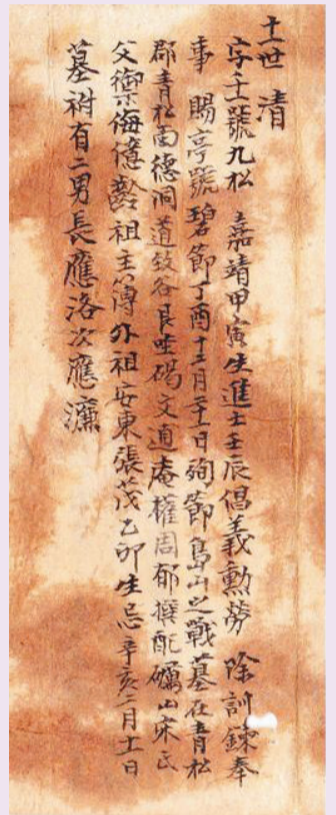 十一世 清
字壬 號九松 嘉靖甲寅生進士壬辰倡義勲勞 除訓鍊奉
事 賜亭號碧節丁酉十二月二十一日殉節島山之戰墓在靑松
郡靑松面德洞道致谷艮坐碣文逋庵權周郁撰配礪山宋氏
父禦侮億齡祖主簿外祖安東張茂乙卯生忌辛亥二月十一日
墓祔有二男長應洛次應濂